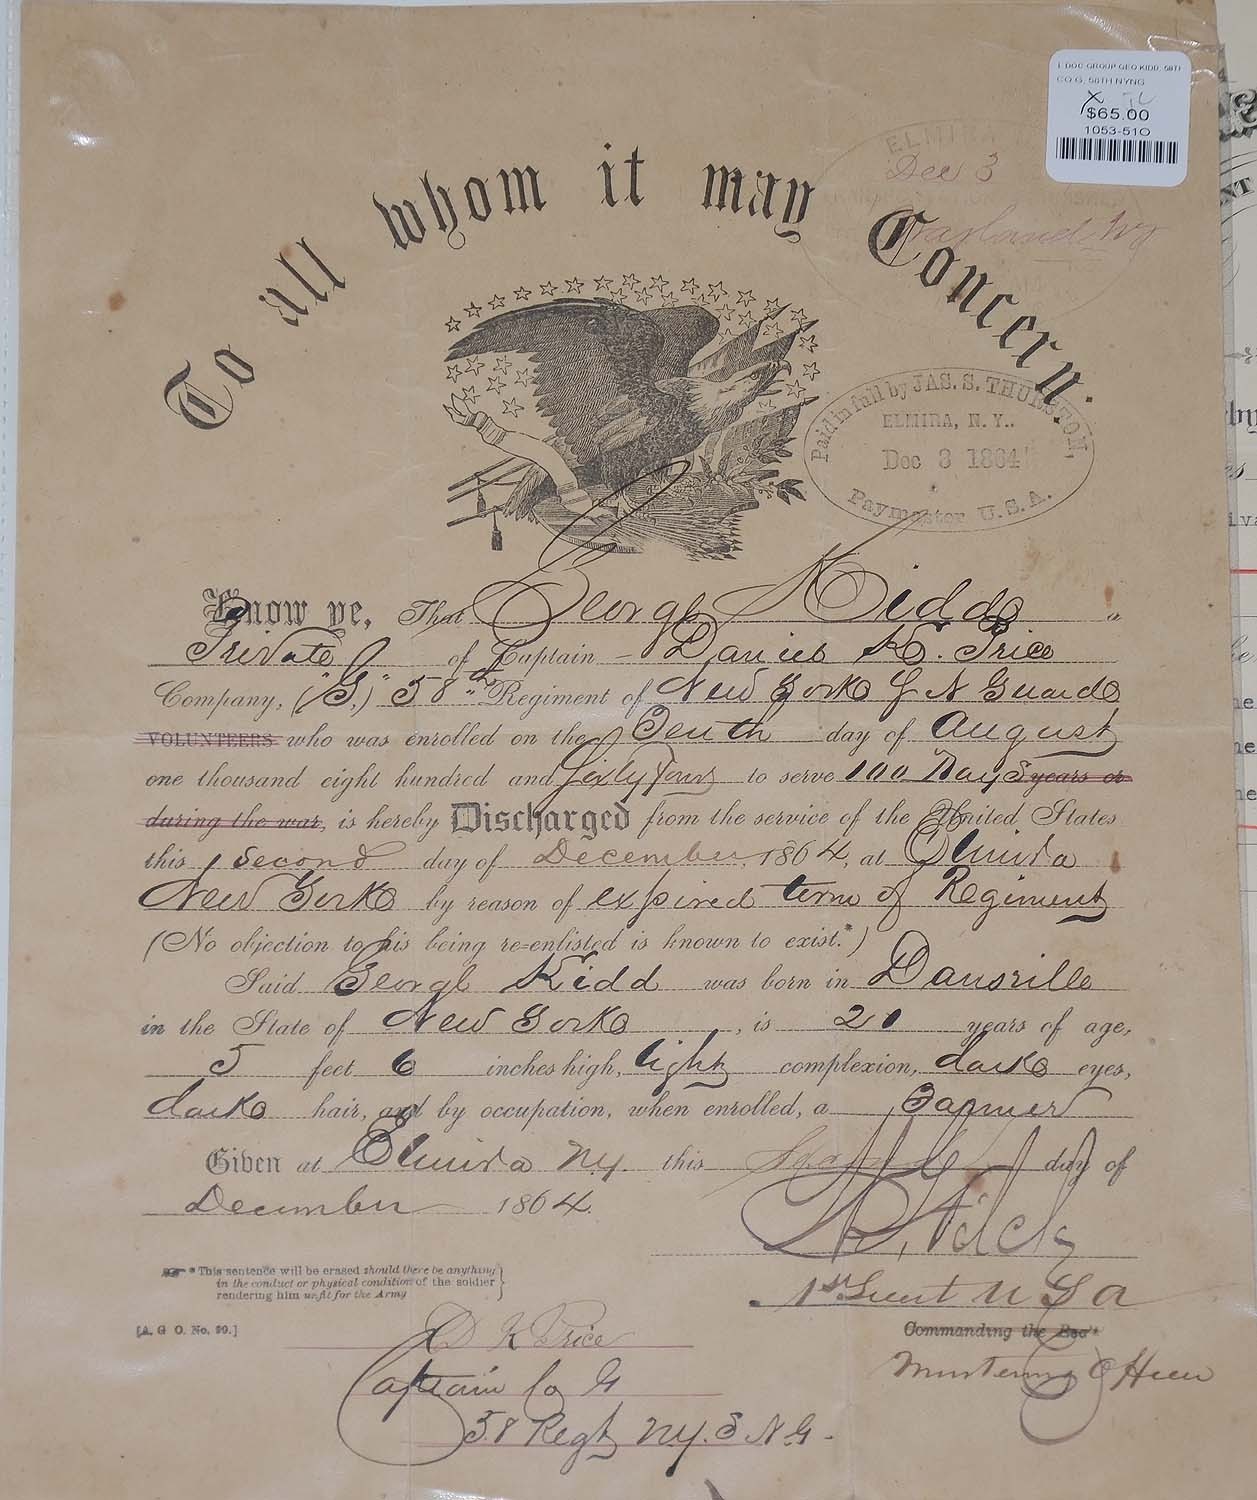 1 DOC GROUP GEO KIDD, 58TH
CO G, 58TH NYNG
$65.00
1053-51O
To all whom it may Concern.
ELMIRA
Dec 3
Paid in full by JAS. S. THURSTON,
ELMIRA, N. Y..
Dec 3 1864
Paymaster U.S.A.
Know ye, That George Kidd
Private of Captain Daniel K. Price
Company, ("G,") 58th Regiment of New York S N Guard
VOLUNTEERS who was enrolled on the Tenth day of August
one thousand eight hundred and Sixty Four to serve 100 Days years or
during the war, is hereby Discharged from the service of the United States
this Second day of December, 1864, at Elmira
New York by reason of expired term of Regiment
(No objection to his being re-enlisted is known to exist.*)
Said George Kidd was born in Dansville
in the State of New York, is 21 years of age,
5 feet 6 inches high, light complexion, dark eyes,
dark hair, and by occupation, when enrolled, a Farmer
Given at Elmira NY. this day of
December 1864.
* This sentence will be erased should there be anything
in the conduct or physical condition of the soldier
rendering him unfit for the Army
1st Lieut U S A
[A. G O. No. 99.]
Commanding the Reg't
D K Price
Mustering Officer
Captain Co G
58 Regt NY. S N.G.